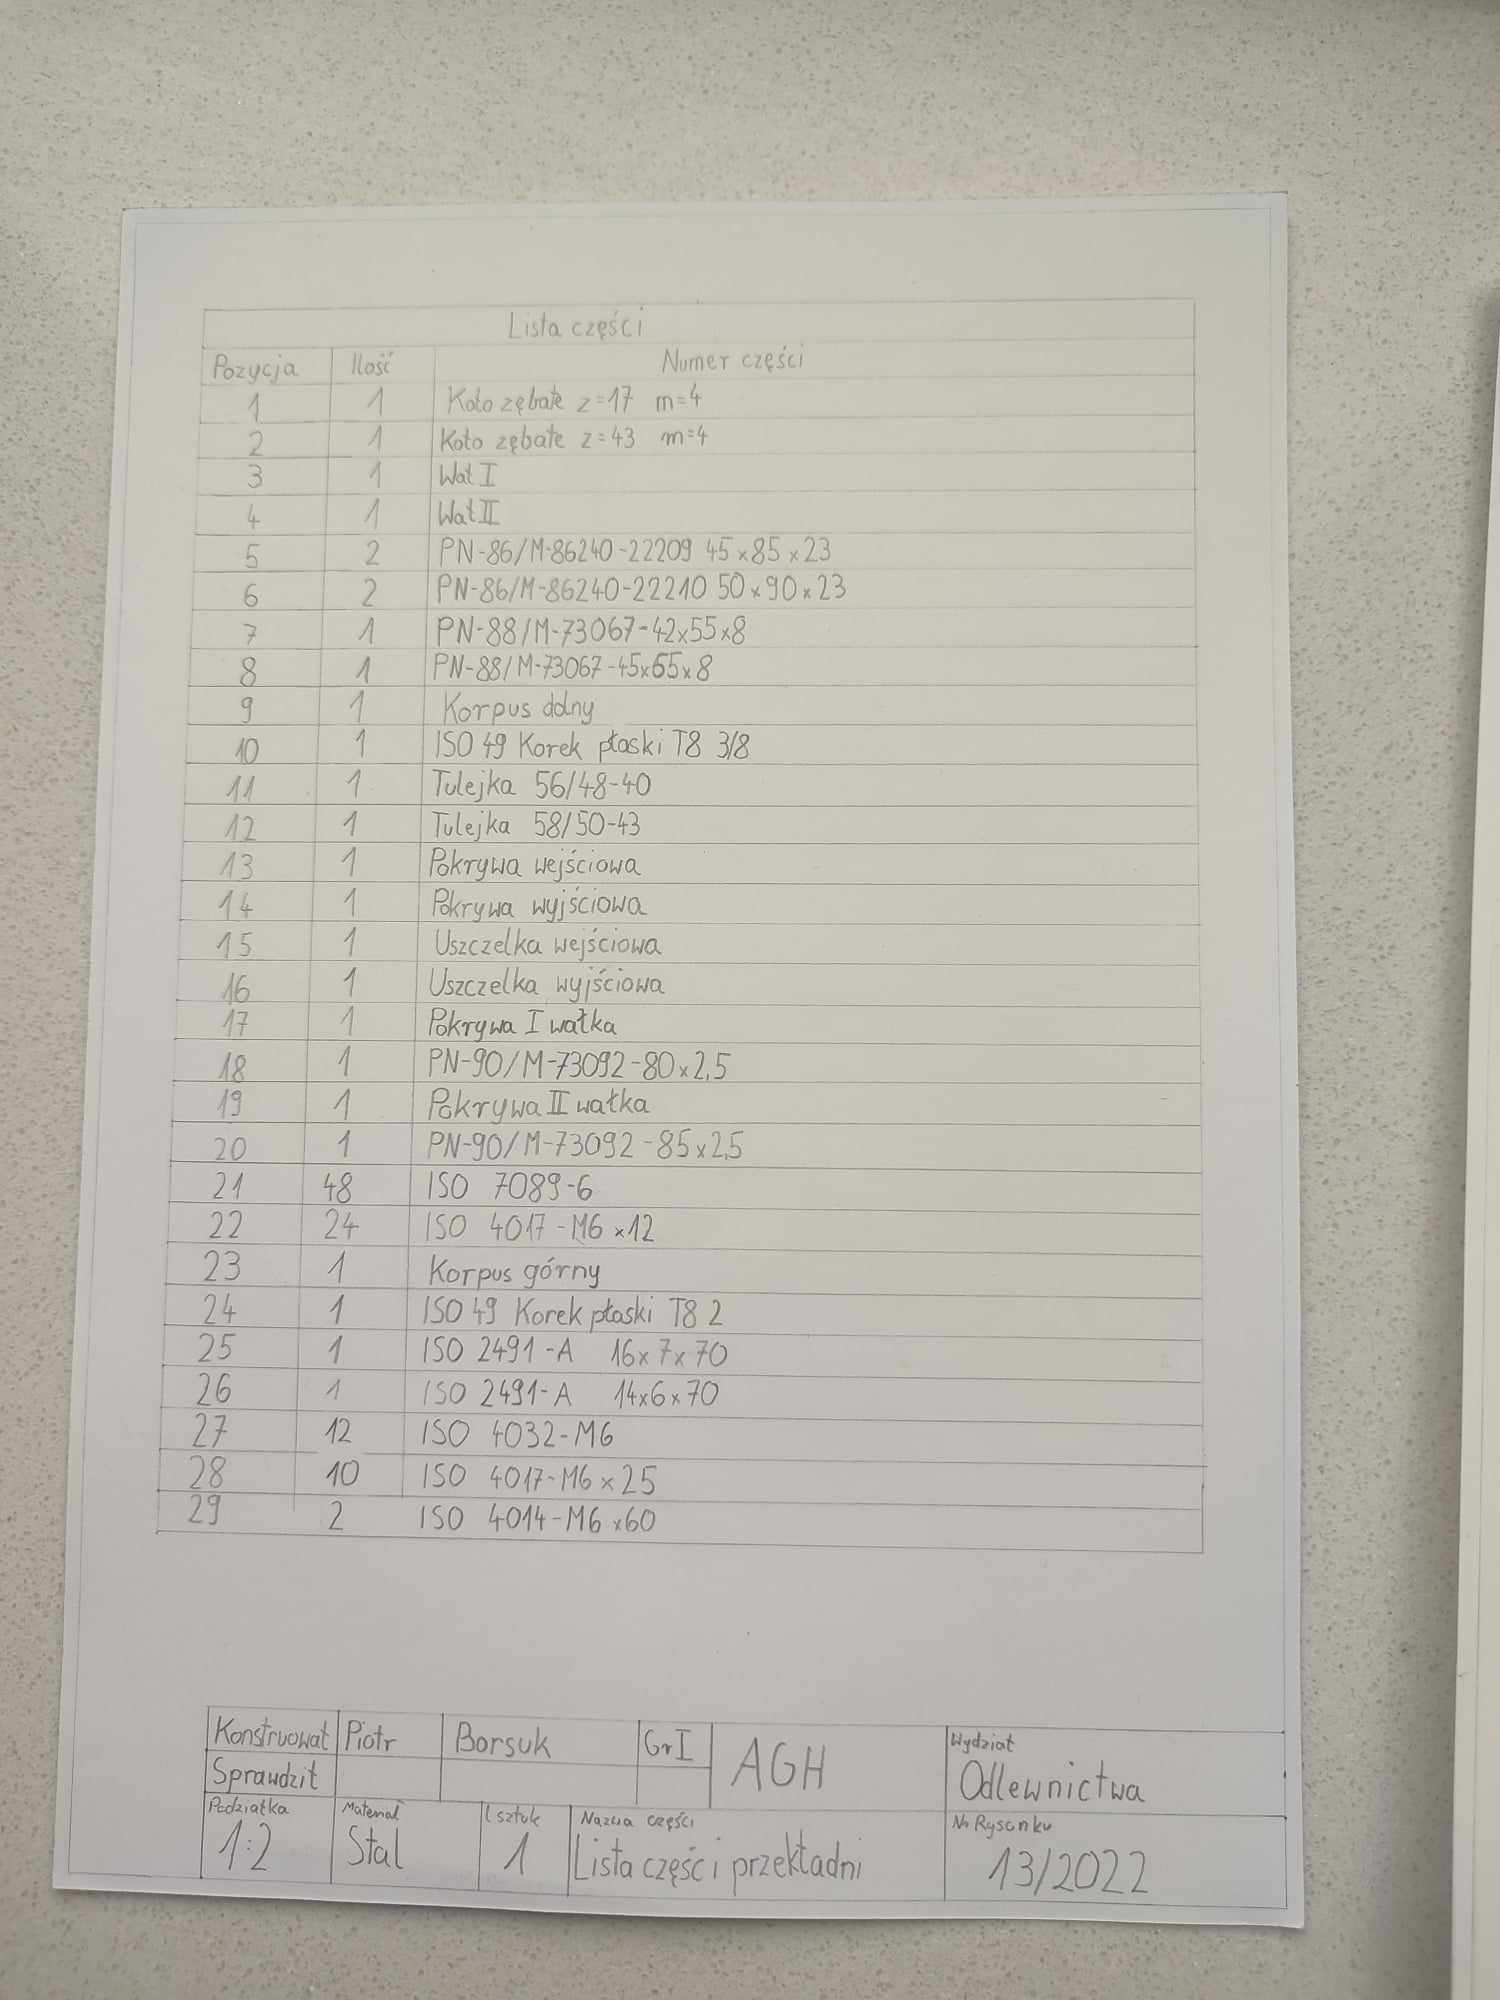 Lista części
Pozycja Ilość Numer części
1 1 Koło zębate z=17 m=4
2 1 Koło zębate z=43 m=4
3 1 Wał I
4 1 Wał II
5 2 PN-86/M-86240-22209 45x85x23
6 2 PN-86/M-86240-22210 50x90x23
7 1 PN-88/M-73067-42x55x8
8 1 PN-88/M-73067-45x65x8
9 1 Korpus dolny
10 1 ISO 49 Korek płaski T8 3/8
11 1 Tulejka 56/48-40
12 1 Tulejka 58/50-43
13 1 Pokrywa wejściowa
14 1 Pokrywa wyjściowa
15 1 Uszczelka wejściowa
16 1 Uszczelka wyjściowa
17 1 Pokrywa I wałka
18 1 PN-90/M-73092-80x2,5
19 1 Pokrywa II wałka
20 1 PN-90/M-73092-85x2,5
21 48 ISO 7089-6
22 24 ISO 4017-M6x12
23 1 Korpus górny
24 1 ISO 49 Korek płaski T8 2
25 1 ISO 2491-A 16x7x70
26 1 ISO 2491-A 14x6x70
27 12 ISO 4032-M6
28 10 ISO 4017-M6x25
29 2 ISO 4014-M6x60
Konstruował Piotr Borsuk Gr I AGH Wydział
Sprawdził Odlewnictwa
Podziałka Materiał I sztuk Nazwa części Nr Rysunku
1:2 Stal 1 Lista części przekładni 13/2022